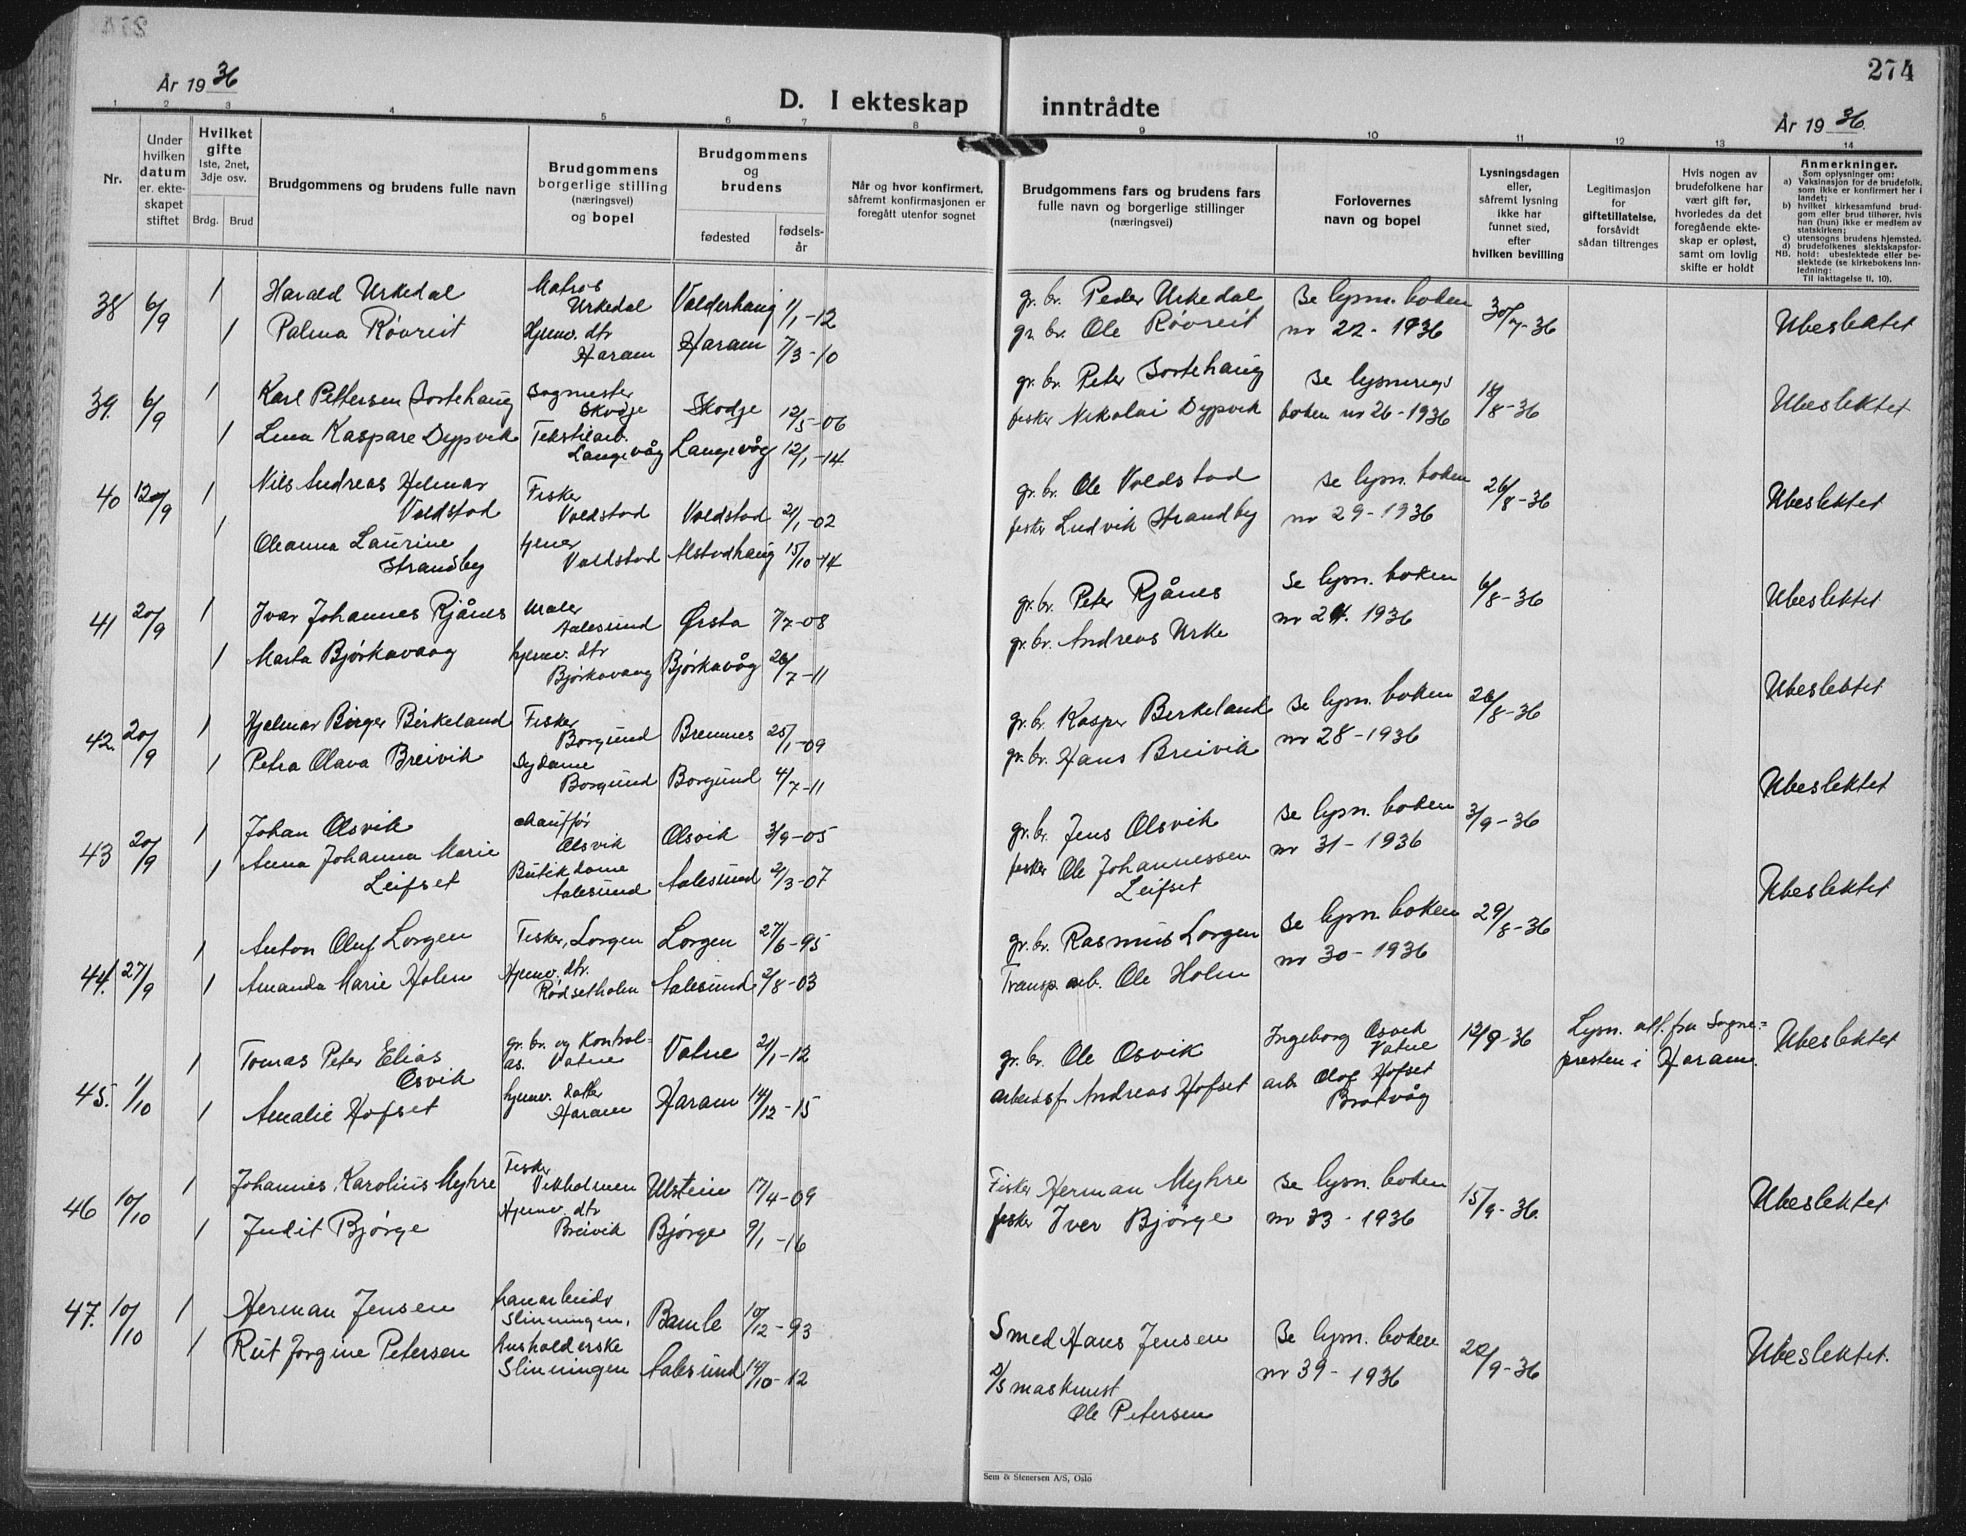 274
År 1936
D. I ekteskap inntrådte
År 1936.
1 2 3 4 5 6 7 8 9 10 11 12 13 14
Nr.
Under hvilken datum er ekteskapet stiftet
Hvilket gifte
1ste, 2net, 3dje osv.
Brdg. Brud
Brudgommens og brudens fulle navn
Brudgommens borgerlige stilling (næringsvei) og bopel
Brudgommens og brudens
fødested
fødselsår
Når og hvor konfirmert, såfremt konfirmasjonen er foregått utenfor sognet
Brudgommens fars og brudens fars fulle navn og borgerlige stillinger (næringsvei)
Forlovernes navn og bopel
Lysningsdagen eller, såfremt lysning ikke har funnet sted, efter hvilken bevilling
Legitimasjon for giftetillatelse, forsåvidt sådan tiltrenges
Hvis nogen av brudefolkene har vært gift før, hvorledes da det foregående ekteskap er opløst, samt om lovlig skifte er holdt
Anmerkninger.
Som oplysninger om:
a) Vaksinasjon for de brudefolk, som ikke er konfirmert her i landet;
b) hvilket kirkesamfund brudgom eller brud tilhører, hvis han (hun) ikke er medlem av statskirken;
c) utensogns brudens hjemsted.
d) brudefolkenes slektskapsforhold: ubeslektede eller beslektede (se kirkebokens innledning:
NB.
Til iakttagelse II, 10).
38 6/9 1 Harald Urkedal Matros Urkedal Valderhaug 1/1-12 gr. br. Peder Urkedal se lysn. boken nr 22-1936 30/7-36 Ubeslektet
1 Palma Røvreit Hjemv. dtr Haram Haram 7/3-10 gr. br. Ole Røvreit
39. 6/9 1 Karl Pettersen Sortehaug Sagmester Skodje Skodje 12/5-06 gr. br. Peter Sortehaug se lysnings boken nr 26-1936 18/8-36 Ubeslektet
1 Lina Kaspare Dypvik Tekstilarb. Langevåg Langevåg 12/1-14 fisker Nikolai Dypvik
40 1 Nils Andreas Helmar Valdstad Fisker Valdstad Valdstad 21/1-02 gr. br. Ole Valdstad se lysn. boken nr 29-1936 26/8-36 Ubeslektet
1 Oleanna Laurine Strandby Valdstad Alstadhaug 15/10-14 fisker Ludvik Strandby
41 20/9 1 Ivar Johannes Rjånes Maler Aalesund Ørsta 7/7-08 gr. br. Peter Rjånes se lysn. boken nr 24. 1936 6/8-36 Ubeslektet
1 Marta Bjørkavaag hjemv. dtr Bjørkavaag Bjørkavåg 26/7-11 gr. br. Andreas Urke
42. 20/9 1 Hjelmar Birger Birkeland Fisker Borgund Bremnes 25/1-09 gr. br. Kasper Birkeland se lysn. boken nr 28-1936 26/8-36 Ubeslektet
1 Petra Olava Breivik Sydame Borgund Borgund 4/7-11 gr. br. Hans Breivik
43 20/9 1 Johan Olsvik chauffør Olsvik Olsvik 3/9-05 gr. br. Jens Olsvik se lysn. boken nr 31-1936 3/9-36 Ubeslektet
1 Anna Johanna Marie Leifset Butikdame Aalesund Aalesund 2/3-07 fisker Ole Johannessen Leifset
44. 27/9 1 Anton Oluf Lorgen Fisker, Lorgen Lorgen 27/6-95 gr. br. Rasmus Lorgen se lysn. boken nr 30-1936 29/8-36 Ubeslektet
1 Amanda Marie Holm Hjemv. dtr. Rødsetholm Aalesund 2/8-03 Transp. arb. Ole Holm
45. 1/10 1 Tomas Peter Elias Osvik gr. br. og Kontrolas. Vatne Vatne 21/1-12 gr. br. Ole Osvik Ingeborg Osvik Vatne 12/9-36 Lysn. att. fra Sognepresten i Haram. Ubeslektet
1 Amalie Hofset hjemv. datter Haram Haram 14/12-15 arbeidsf. Andreas Hofset arb. Olaf Hofset Brattvåg
46 10/10 1 Johannes Karolius Myhre Fisker Vikholmen Ulstein 17/4-09 Fisker Herman Myhre se lysn. boken nr 33-1936 15/9-36. Ubeslektet
1 Judit Bjørge Hjemv. dtr Breivik Bjørge 9/1-16 fisker Iver Bjørge
47. 10/10 1 Herman Jensen havarbeider Slinningen, Bamle 10/12-93 Smed Hans Jensen Se lysn. boken nr 39-1936 22/9-36 Ubeslektet.
1 Rut Jorgine Petersen husholderske Slinningen Aalesund 14/10-12 maskinist Ole Petersen
Sem & Stenersen A/S, Oslo